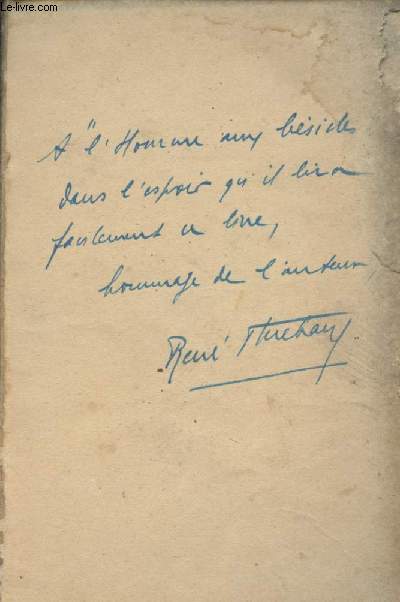 Le-livre.com
A "l'Homme aux bésicles
dans l'espoir qu'il lira
facilement ce livre,
hommage de l'auteur
René